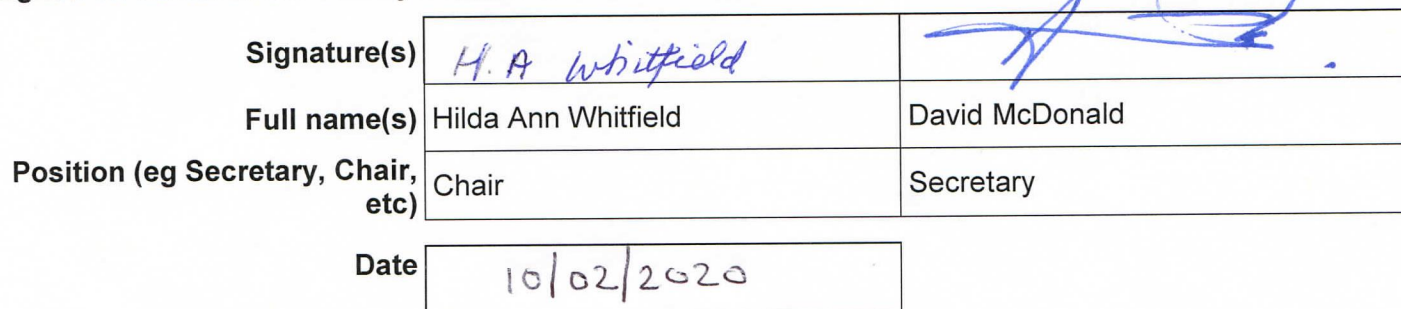 Signature(s) H. A Whitfield
Full name(s) Hilda Ann Whitfield David McDonald
Position (eg Secretary, Chair, etc) Chair Secretary
Date 10/02/2020